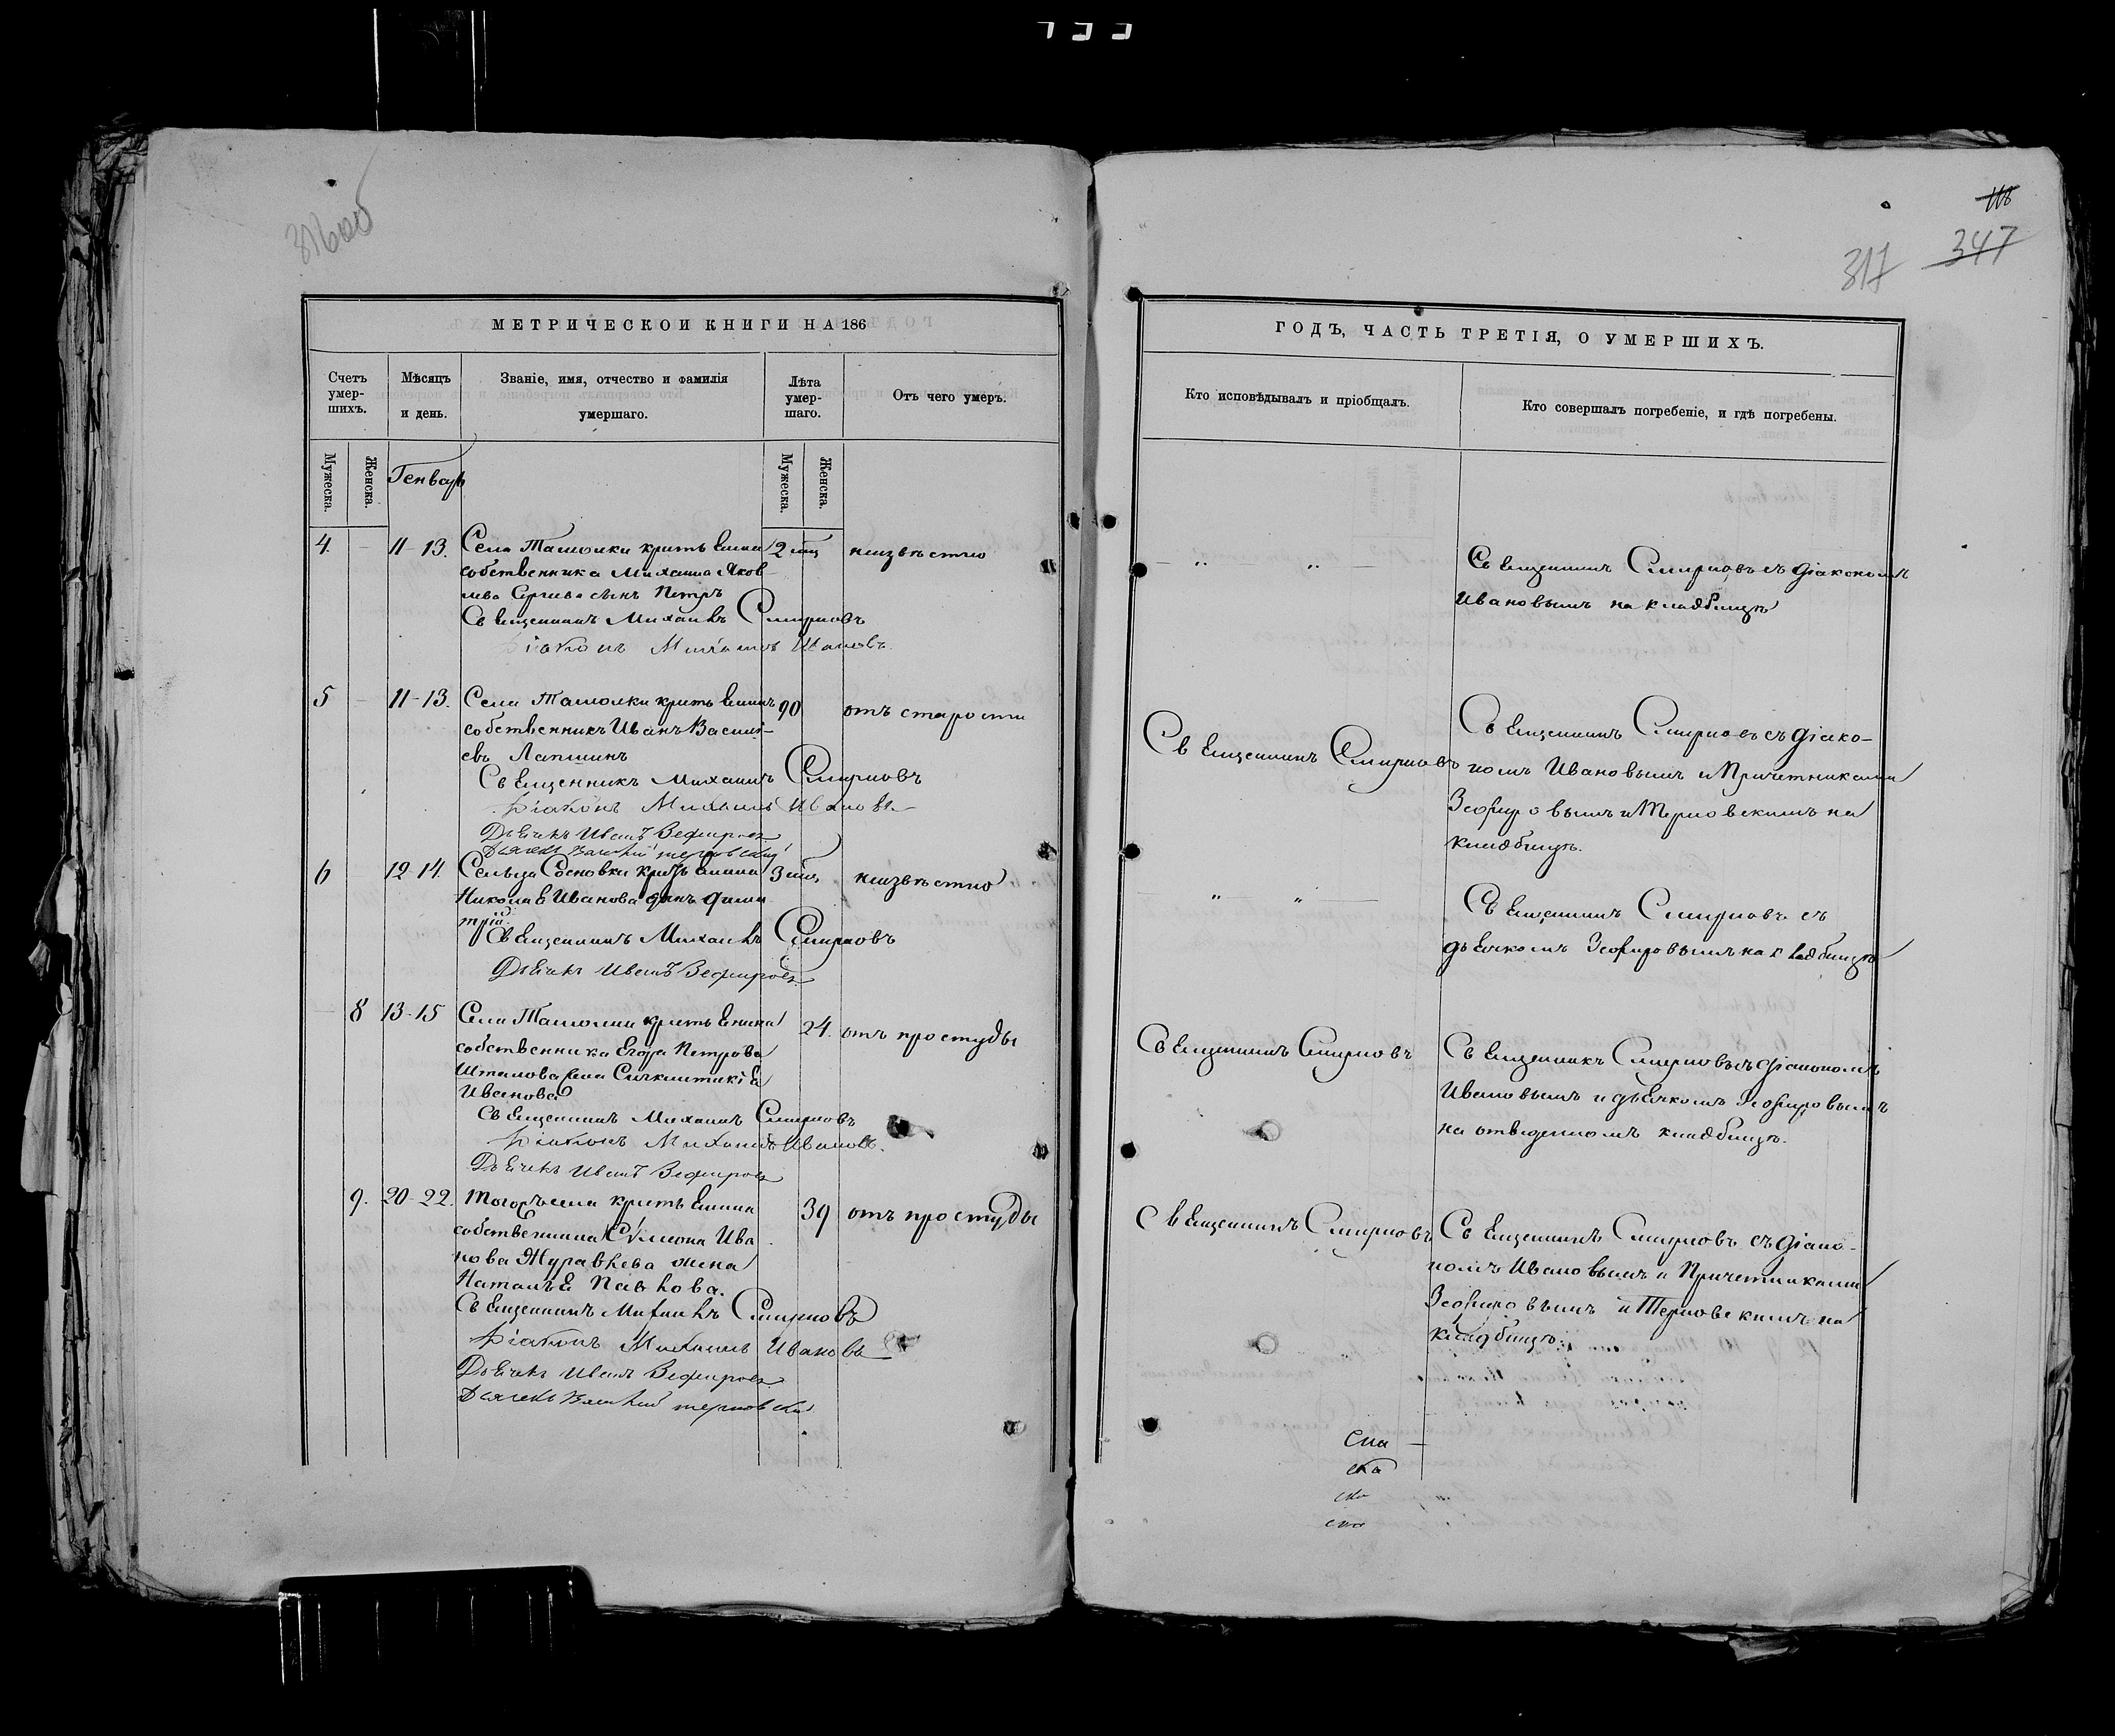 316об
118
347
317
МЕТРИЧЕСКОЙ КНИГИ НА 186
Счетъ умер-шихъ.
Мѣсяцъ и день.
Званіе, имя, отчество и фамилія умершаго.
Лѣта умер-шаго.
Отъ чего умеръ.
Мужеска.
Женска.
Генварь
Мужеска.
Женска.
4. — 11-13. Села Ташолки крестьянина 2 мѣс неизвѣстно
собственника Михаила Яков-
лева Сергѣева сынъ Петръ
Священникъ Михаилъ Смирновъ
Діаконъ Михаилъ Ивановъ.
5 — 11-13. Села Ташолки крестьянинъ 90 отъ старости
собственникъ Иванъ Василь-
евъ Лапшинъ
Священникъ Михаилъ Смирновъ
Діаконъ Михаилъ Ивановъ
Дьячекъ Иванъ Зефировъ
6 — 12-14. Сельца Сосновки крестьянина неизвѣстно
Николая Иванова сынъ Дими
трій.
Священникъ Михаилъ Смирновъ
Дьячекъ Иванъ Зефировъ
— 8 13-15 Села Ташолки крестьянина 24. отъ простуды
собственника Егора Петрова
Иванова
Священникъ Михаилъ Смирновъ
Діаконъ Михаилъ Ивановъ.
Дьячекъ Иванъ Зефировъ
9. 20-22. Тогожъ села крестьянина 39 отъ простуды
собственника Сѵмеона Ива
нова Журавлева жена
Наталья Павлова.
Священникъ Михаилъ Смирновъ
Діаконъ Михаилъ Ивановъ
Дьячекъ Иванъ Зефировъ
ГОДЪ, ЧАСТЬ ТРЕТІЯ, О УМЕРШИХЪ.
Кто исповѣдывалъ и пріобщалъ.
Кто совершалъ погребеніе, и гдѣ погребены.
— „ — „ — Священникъ Смирновъ съ діакономъ
Ивановымъ на кладбищѣ
Священникъ Смирновъ
Священникъ Смирновъ съ діако-
номъ Ивановымъ и Причетниками
Зефировымъ и Терновскимъ на
кладбищѣ.
— „ — „ — Священникъ Смирновъ съ
дьячкомъ Зефировымъ на кладбищѣ
Священникъ Смирновъ
Священникъ Смирновъ съ діакономъ
Ивановымъ и дьячкомъ Зефировымъ
на отведенномъ кладбищѣ.
Священникъ Смирновъ
Священникъ Смирновъ съ діако-
номъ Ивановымъ и Причетниками
Зефировымъ и Терновскимъ на
кладбищѣ.